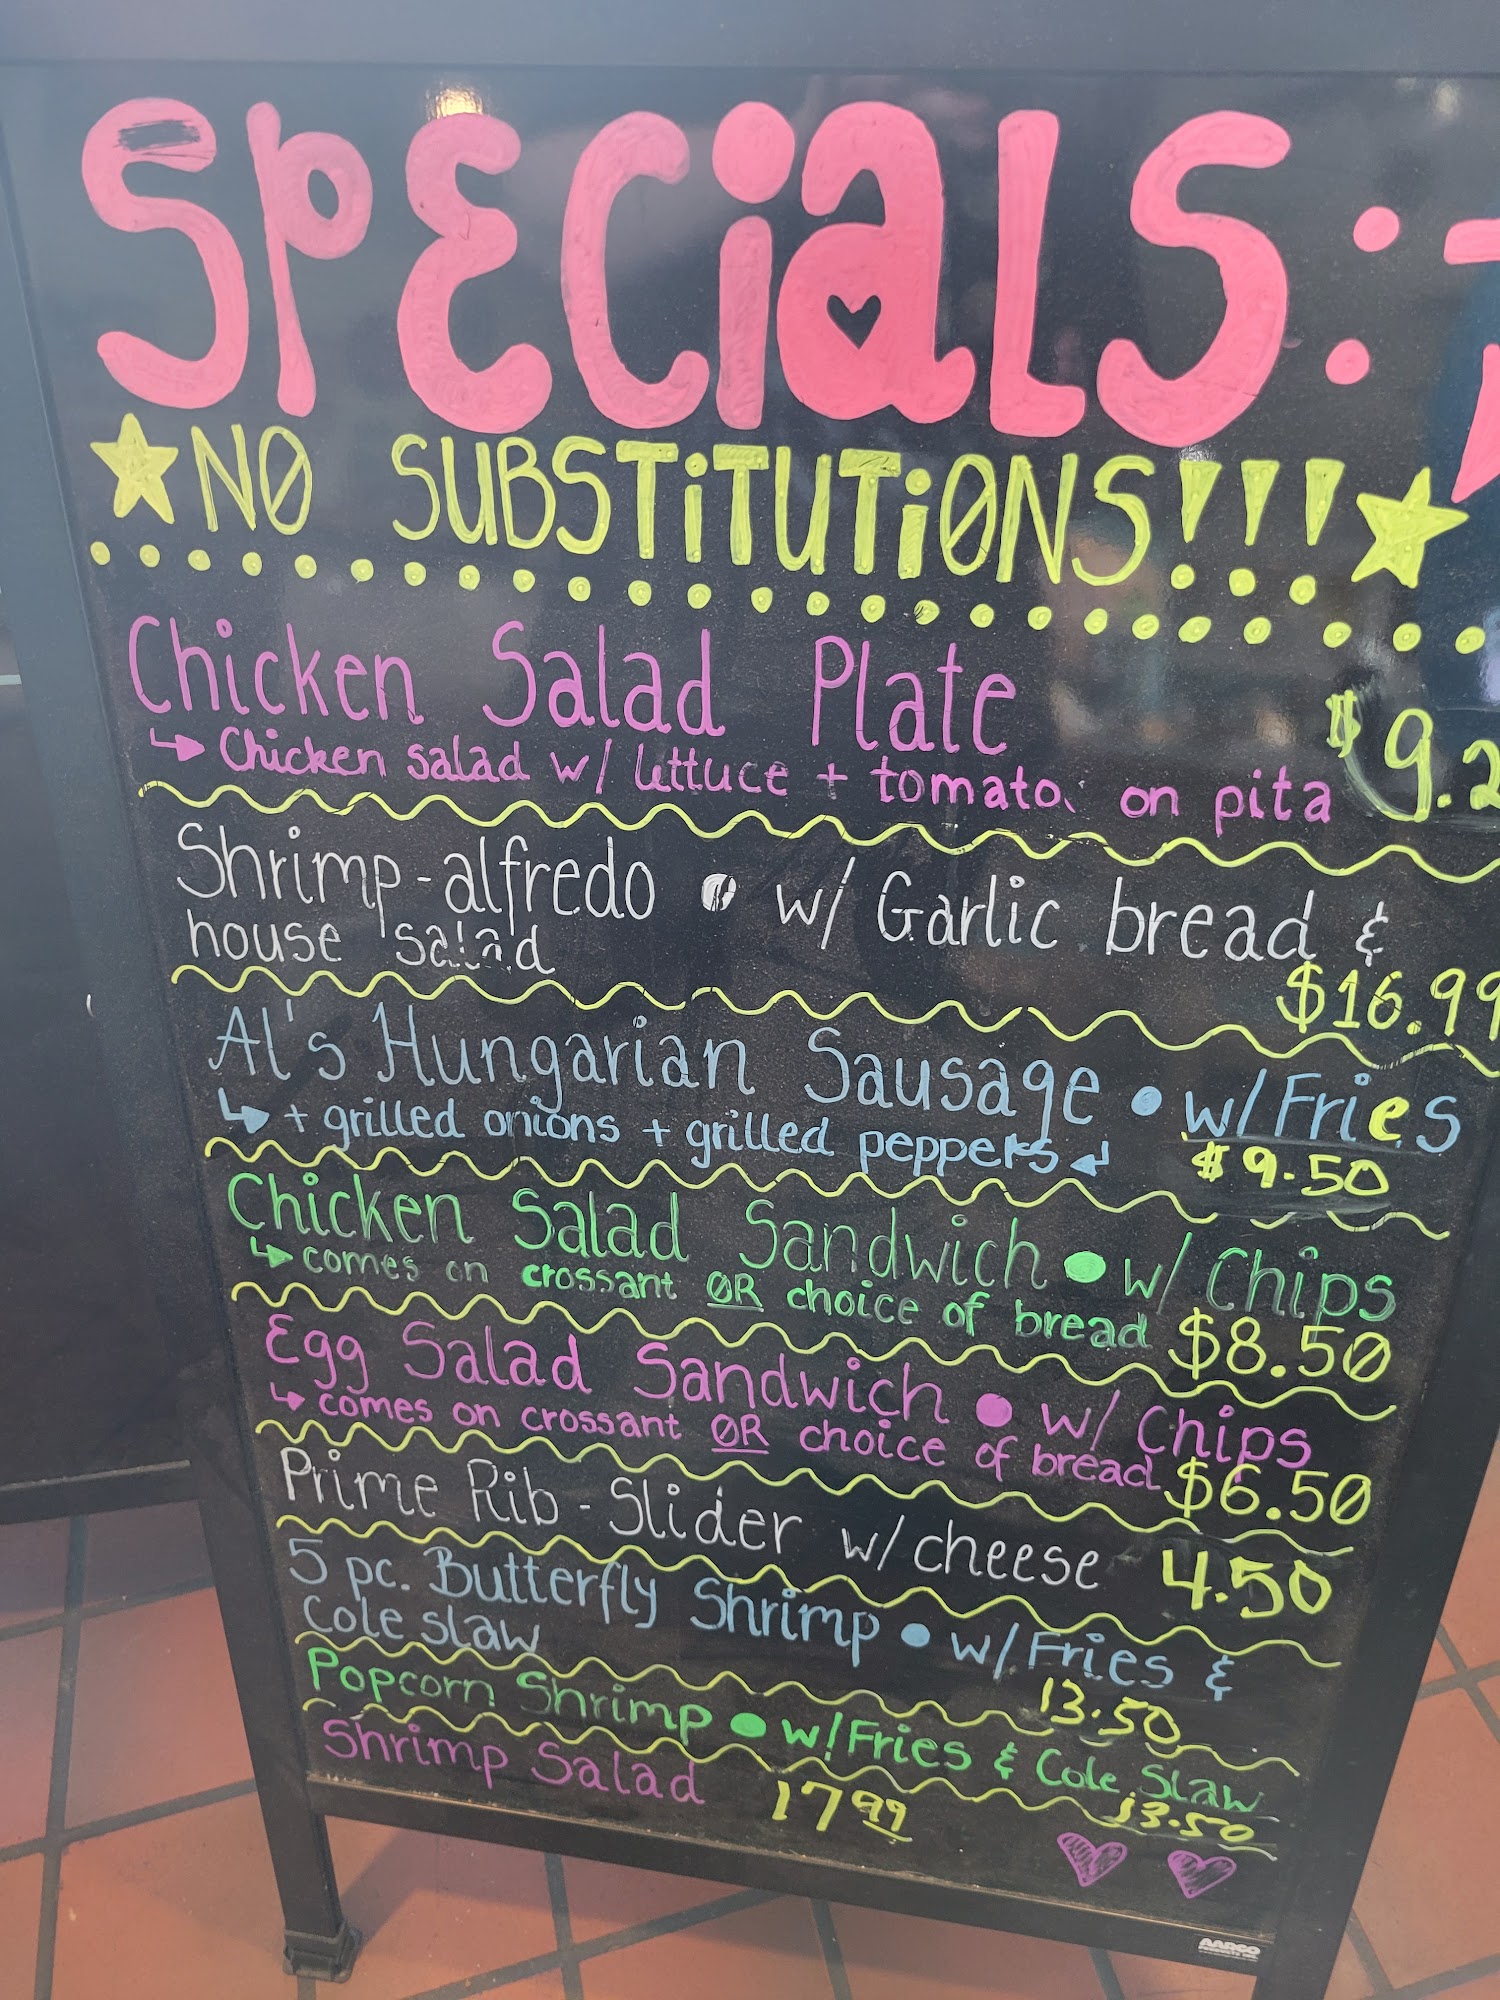 SPECiaLS:
NO SUBSTiTUTiONS!!!
Chicken Salad Plate
Chicken salad w/ lettuce + tomato on pita
$9.2
Shrimp-alfredo • w/ Garlic bread &
house salad
$16.99
Al's Hungarian Sausage • w/Fries
+ grilled onions + grilled peppers
$9.50
Chicken Salad Sandwich • w/ Chips
comes on crossant OR choice of bread
$8.50
Egg Salad Sandwich • w/ Chips
comes on crossant OR choice of bread
$6.50
Prime Rib - Slider w/cheese 4.50
5 pc. Butterfly Shrimp • w/Fries &
Cole slaw
13.50
Popcorn Shrimp • w/Fries & Cole Slaw
13.50
Shrimp Salad 17.99
AARCO